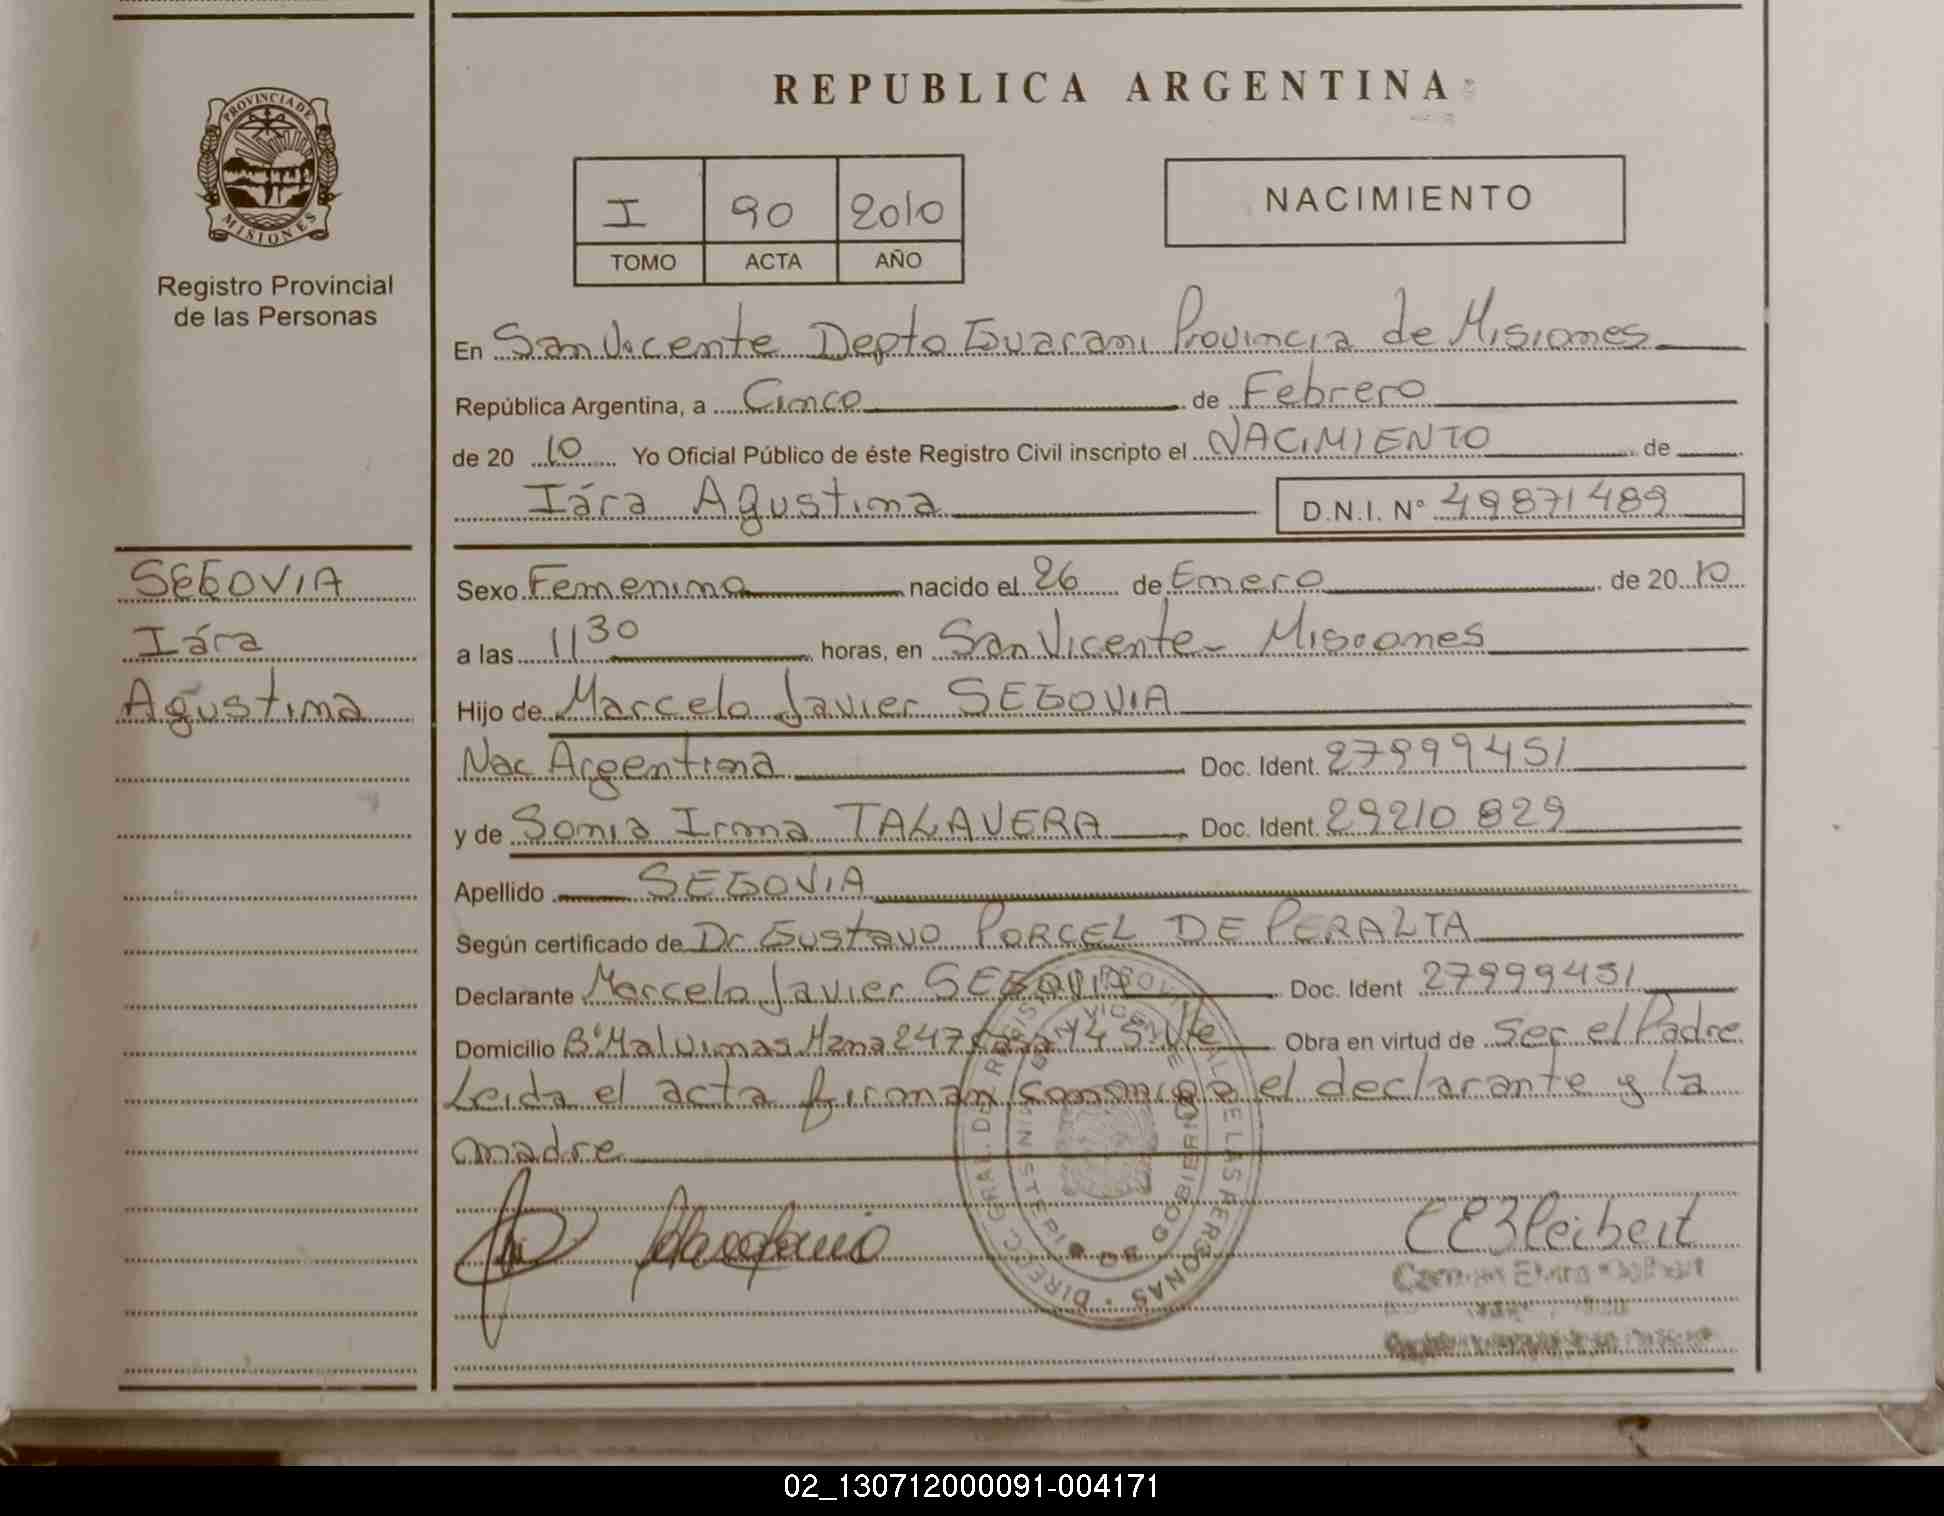 REPUBLICA ARGENTINA
PROVINCIA DE
MISIONES
Registro Provincial
de las Personas
I 90 2010
TOMO ACTA AÑO
NACIMIENTO
En San Vicente Depto Guarani Provincia de Misiones
República Argentina, a Cinco de Febrero
de 20 10 Yo Oficial Público de éste Registro Civil inscripto el NACIMIENTO de
Iára Agustina D.N.I. N° 49871489
SEGOVIA
Iára
Agustina
Sexo Femenino nacido el 26 de Enero de 20 10
a las 11 30 horas, en San Vicente - Misiones
Hijo de Marcelo Javier SEGOVIA
Nac Argentina Doc. Ident. 27999451
y de Sonia Irma TALAVERA Doc. Ident. 29210829
Apellido SEGOVIA
Según certificado de Dr Gustavo PORCEL DE PERALTA
Declarante Marcelo Javier SEGOVIA Doc. Ident 27999451
Domicilio B° Malvinas Mzna 247 Casa 14 S. Vte Obra en virtud de Ser el Padre
Leida el acta firman conmigo el declarante y la
madre
02_130712000091-004171